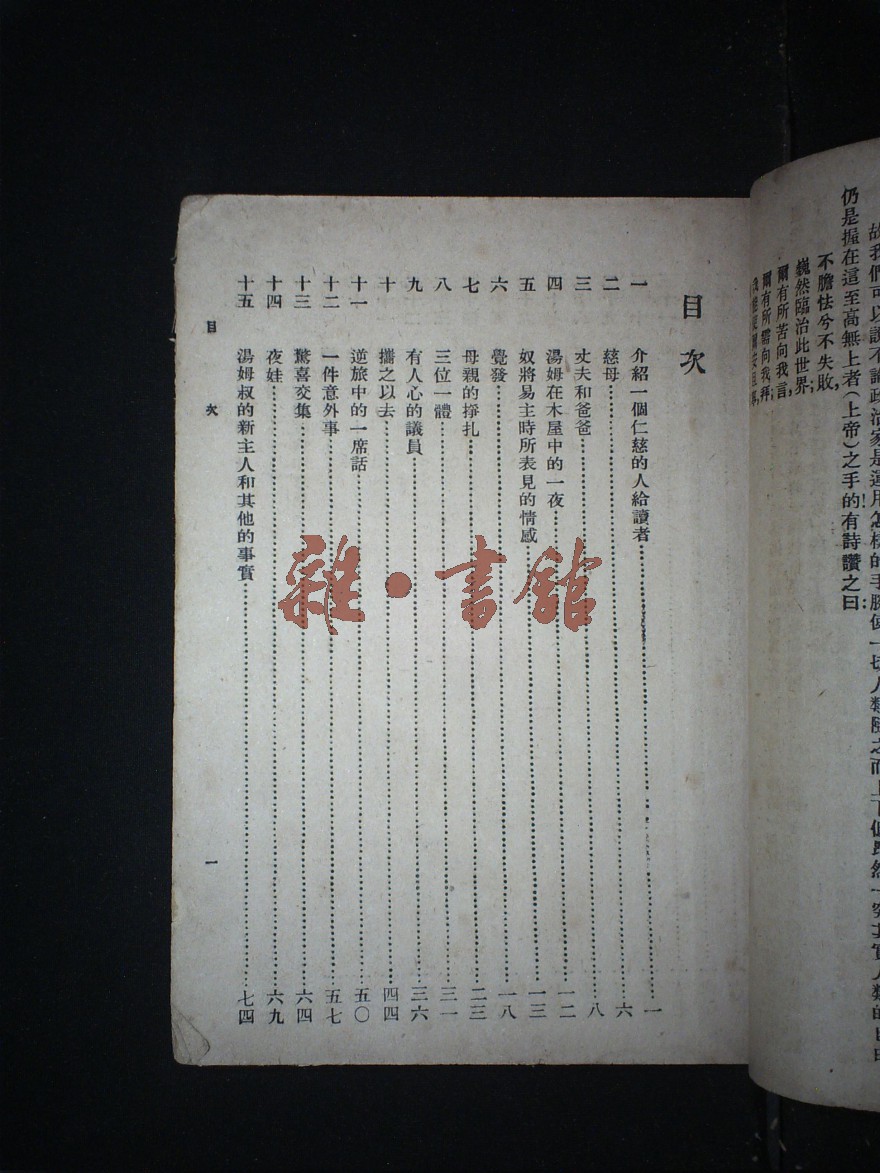 故我們可以說不論政治家是運用怎樣的手腕使一切人類隨之而上下但
仍是握在這至高無上者(上帝)之手的有詩讚之曰:
不膽怯兮不失敗,
巍然臨治此世界;
爾有所苦向我言,
爾有所需向我拜;
目次
一 介紹一個仁慈的人給讀者 一
二 慈母 六
三 丈夫和爸爸 八
四 湯姆在木屋中的一夜 一二
五 奴將易主時所表見的情感 一三
六 覺發 一八
七 母親的掙扎 二三
八 三位一體 三一
九 有人心的議員 三六
十 攜之以去 四四
十一 逆旅中的一席話 五〇
十二 一件意外事 五七
十三 驚喜交集 六四
十四 夜娃 六九
十五 湯姆叔的新主人和其他的事實 七四
目 次 一
雜·書館